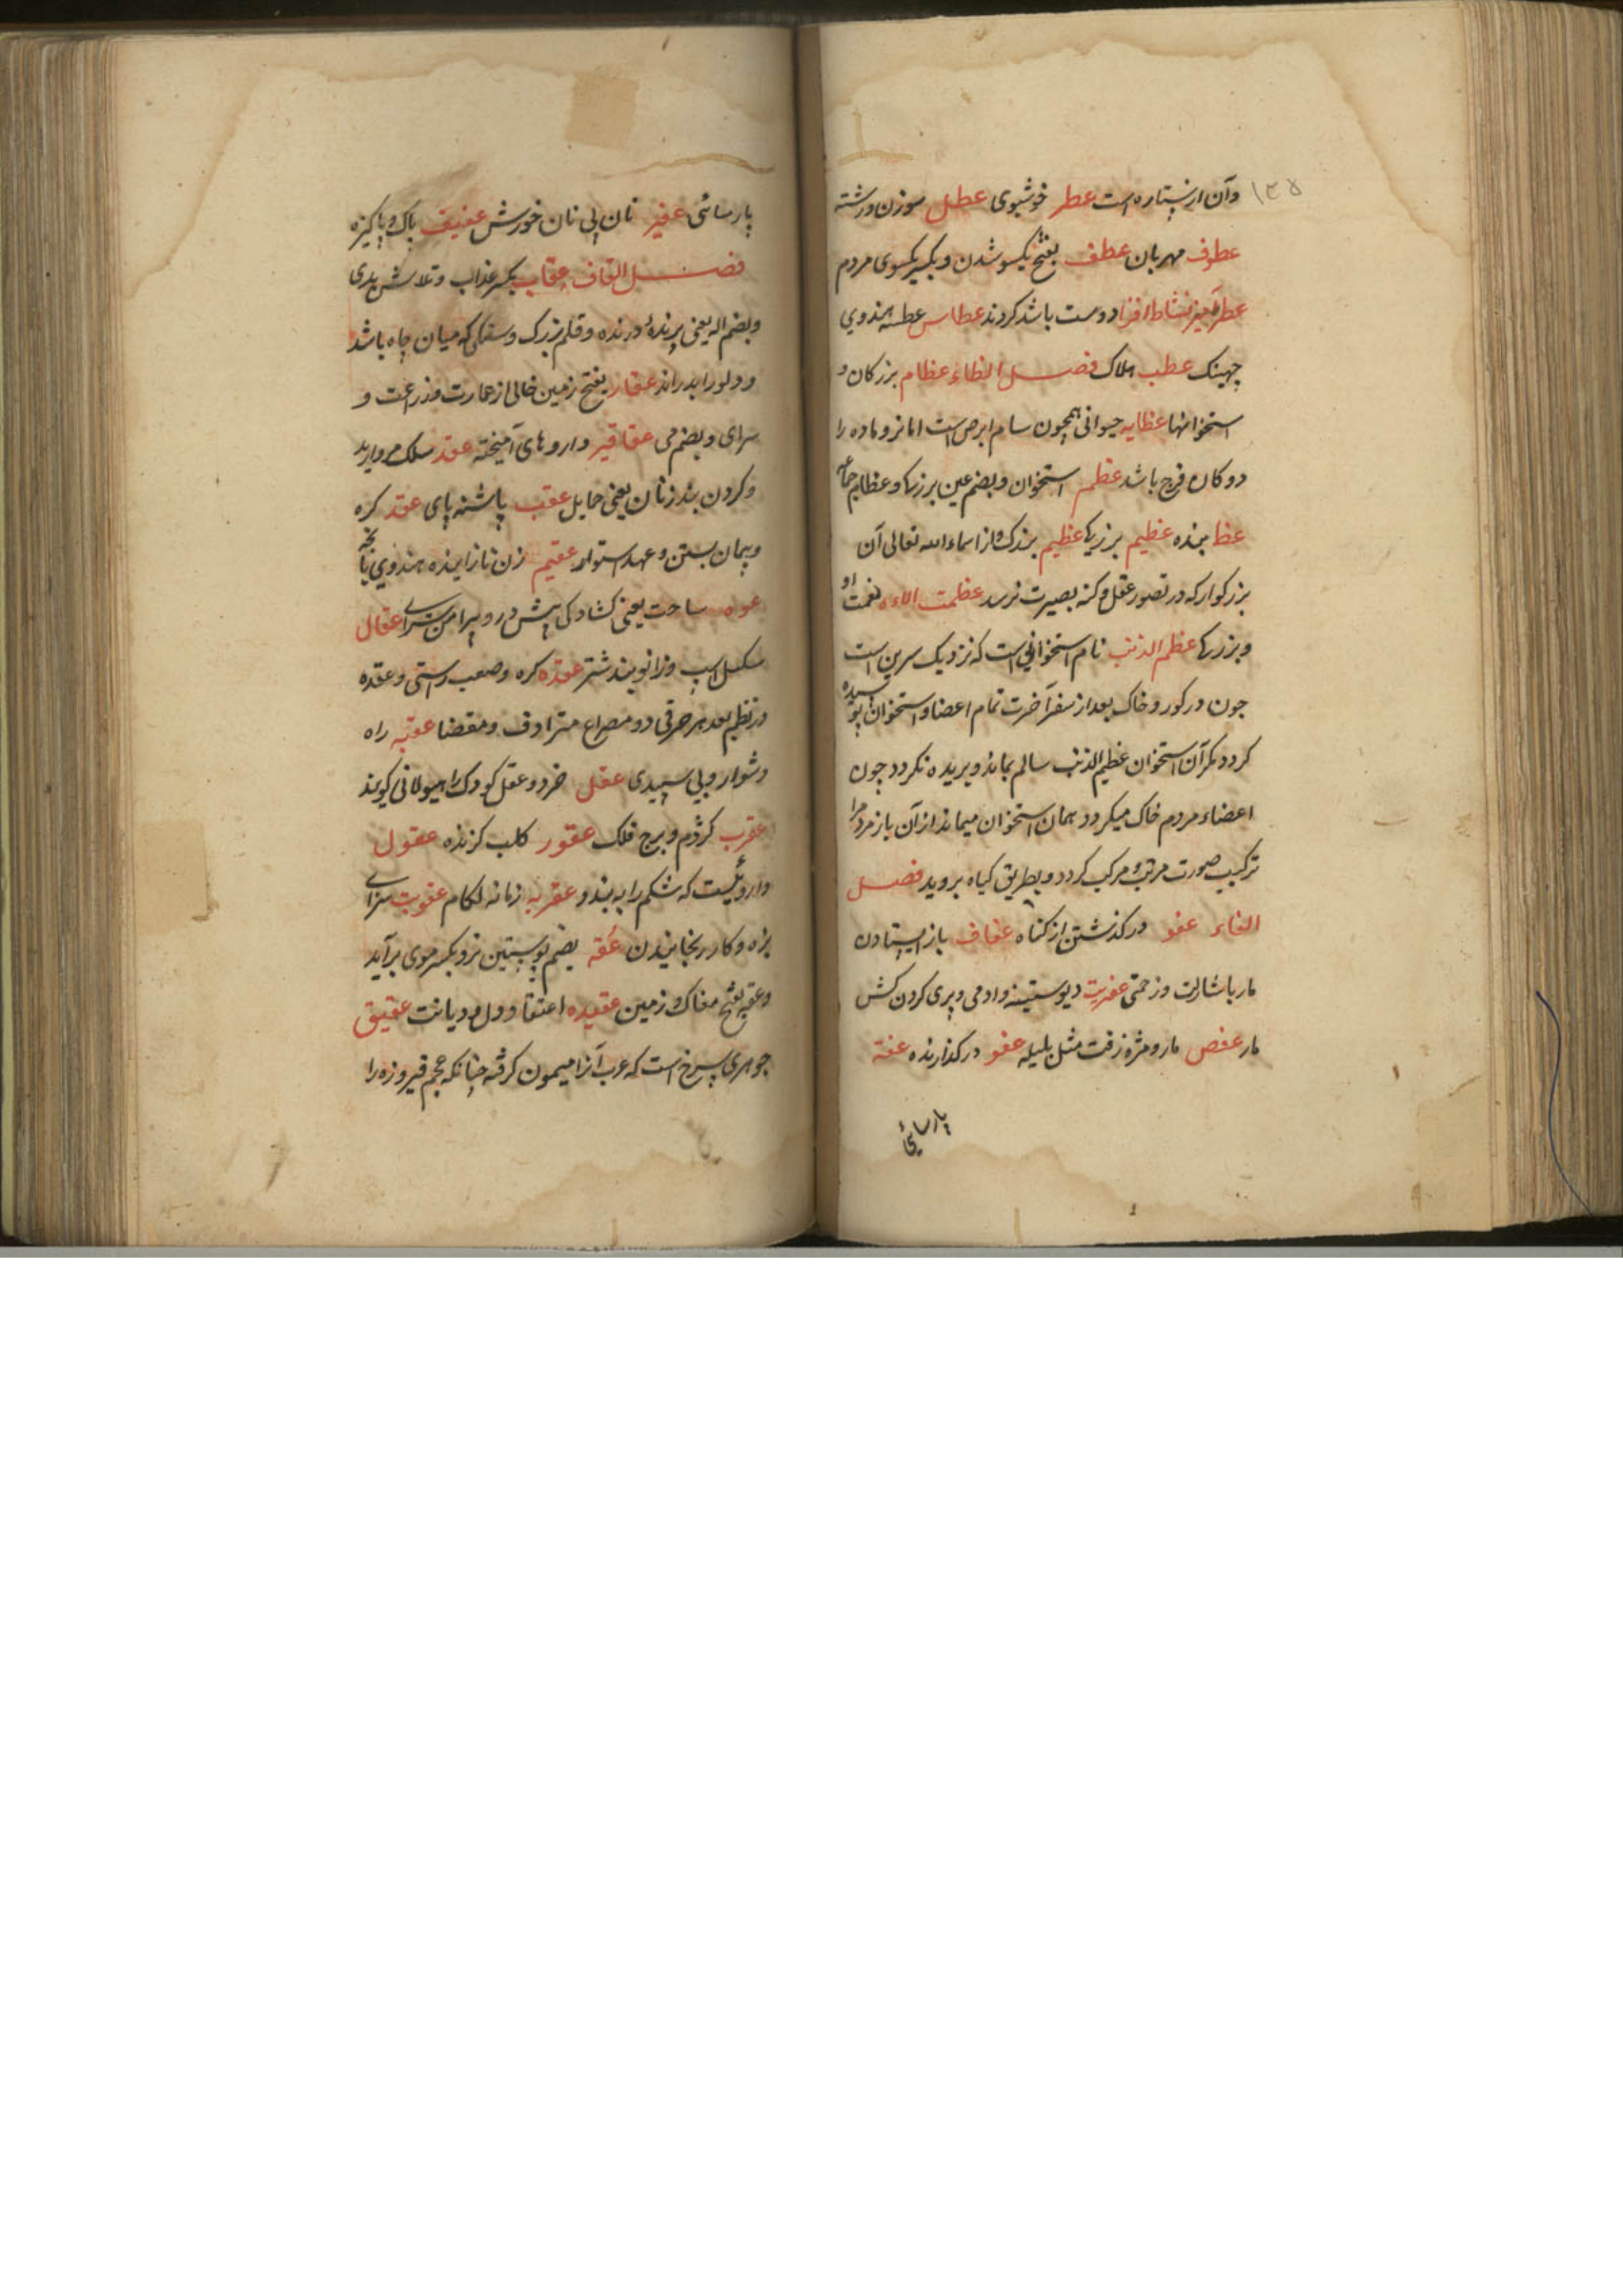 ۱۳۸
وآن ازستاره است عطر خوشبوی عطل سوزن ورشته
عطوف مهربان عطف بفتح یکسو شدن وبکسر یکسوی مردم
عطرآمیز نشاط افزا دوست باشد کردند عطاس عطسه هندوی
چهینک عطب هلاک فصل الظاء عظام بزرکان و
استخوانها عظایه حیوانی همچون سام ابرص است اما نر وماده را
دوکان فرج باشد عظم استخوان وبضم عین بزرکها وعظام جماعه
عظا بنده عظیم بزرکها عظیم بزرک واز اسماء الله تعالی آن
بزرکوار که در تصور عقل وکنه بصیرت نرسد عظمت الاءه نعمت او
وبزرکها عظم الذنب نام استخوانی است که نزدیک سرین است
جون درکور وخاک بعد از سفر آخرت تمام اعضا واستخوان پوسیده
کردد مکر آن استخوان عظیم الذنب سالم بماند وبریده نکردد چون
اعضاء مردم خاک میکردد همان استخوان میماند از آن باز مردم را
ترکیب صورت مرتب مرکب کردد وبطریق کیاه بروید فصل
الفاء عفو درکذشتن از کناه عفاف باز ایستادن
مار باشارت وزحمتی عفریت دیو ستیزه وادمی وپری کردن کش
مار عفص مازو مزه زفت مثل بلیله عفو درکذارنده عفة
پارسائی
پارسائی عفیر نان بی نان خورش عفیف پاک وپاکیزه
فصل القاف عقاب بکسر عذاب وتلاش بدی
وبضم اله یعنی پرندهٔ درنده وقلم بزرک وسنکی که میان چاه باشد
ودلو را بدراند عقار بفتح زمین خالی از عمارت وزراعت و
سرای وبضم می عقاقیر داروهای آمیخته عقد سلک مروارید
وکردن بند زنان یعنی حمایل عقب پاشنه پای عقد کره
وپیمان بستن وعهد استوار عقیم زن نازاینده هندوی بانجه
عوه ساحت یعنی کشادکی پیش در وپیرامن سرای عقال
سکیل اسپ وزانو بند شتر عقده کره وصعب راستی وعقده
درنظم بعد هر حرفی دو مصراع مترادف ومقضا عقبه راه
دشوار وپی سپیدی عقل خرد وعقل کودک را هیولانی کویند
عقرب کژدم وبرج فلک عقور کلب کزنده عقول
داروئیست که شکم را به بندد عقربه زمانه لکام عقوبت سزای
بزه وکار رنجانیدن عقه بضم پوستین نر وبکسر موی برآید
وعقه بفتح مغاک در زمین عقیده اعتقاد دل ودیانت عقیق
جوهری سرخ است که عرب آنرا میمون کرفته چنانکه عجم فیروزه را